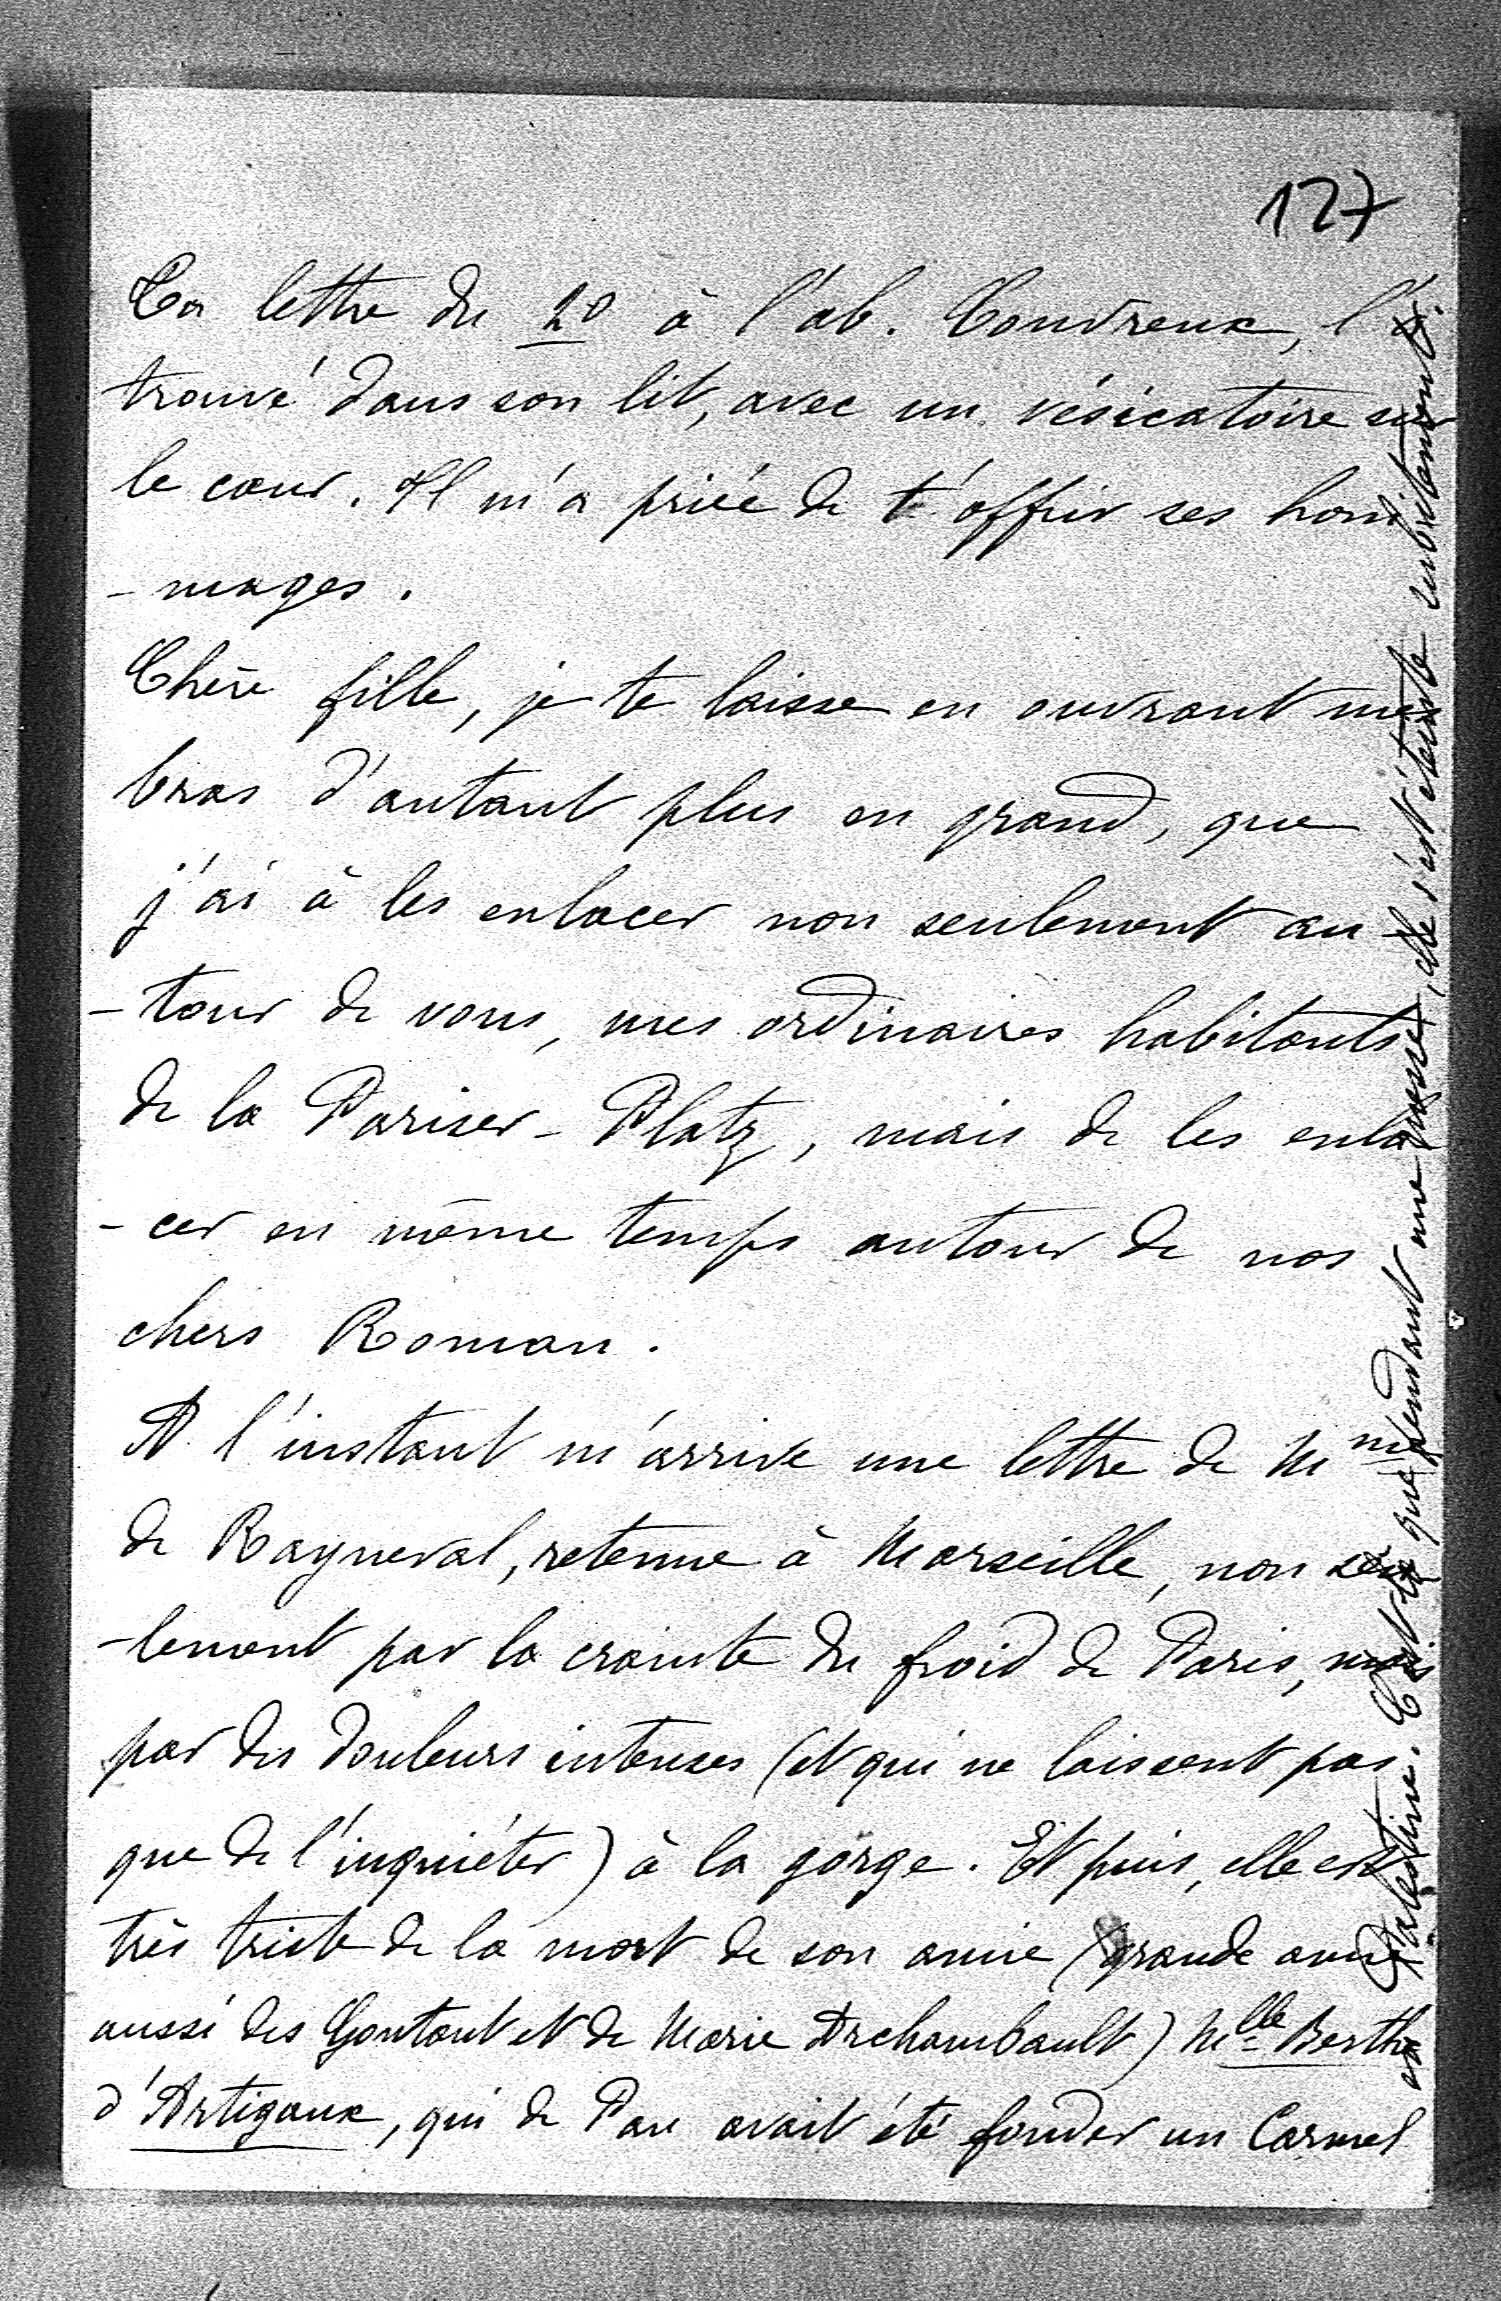 127
Ta lettre du 20 à l'ab. Couvreux, l'a
trouvé dans son lit, avec un vésicatoire sur
le cœur. Il m'a priée de t'offrir ses hom
-mages.
Chère fille, je te laisse en ouvrant mes
bras d'autant plus en grand, que
j'ai à les enlacer non seulement au-
-tour de vous, mes ordinaires habitants
de la Pariser-Platz, mais de les enla
-cer en même temps autour de nos
chers Roman.
A l'instant m'arrive une lettre de Mme
de Rayneval, retenue à Marseille, non seu
-lement par la crainte du froid de Paris, mais
par des douleurs intenses (et qui ne laissent pas
que de l'inquiéter) à la gorge. Et puis, elle est
très triste de la mort de son amie (grande amie
aussi des Gontaut et de Marie Archambault) Mlle Berthe
d'Artigaux, qui de Pau avait été fonder un Carmel
en Palestine. C'est là que pendant une messe, elle s'est éteinte subitement.